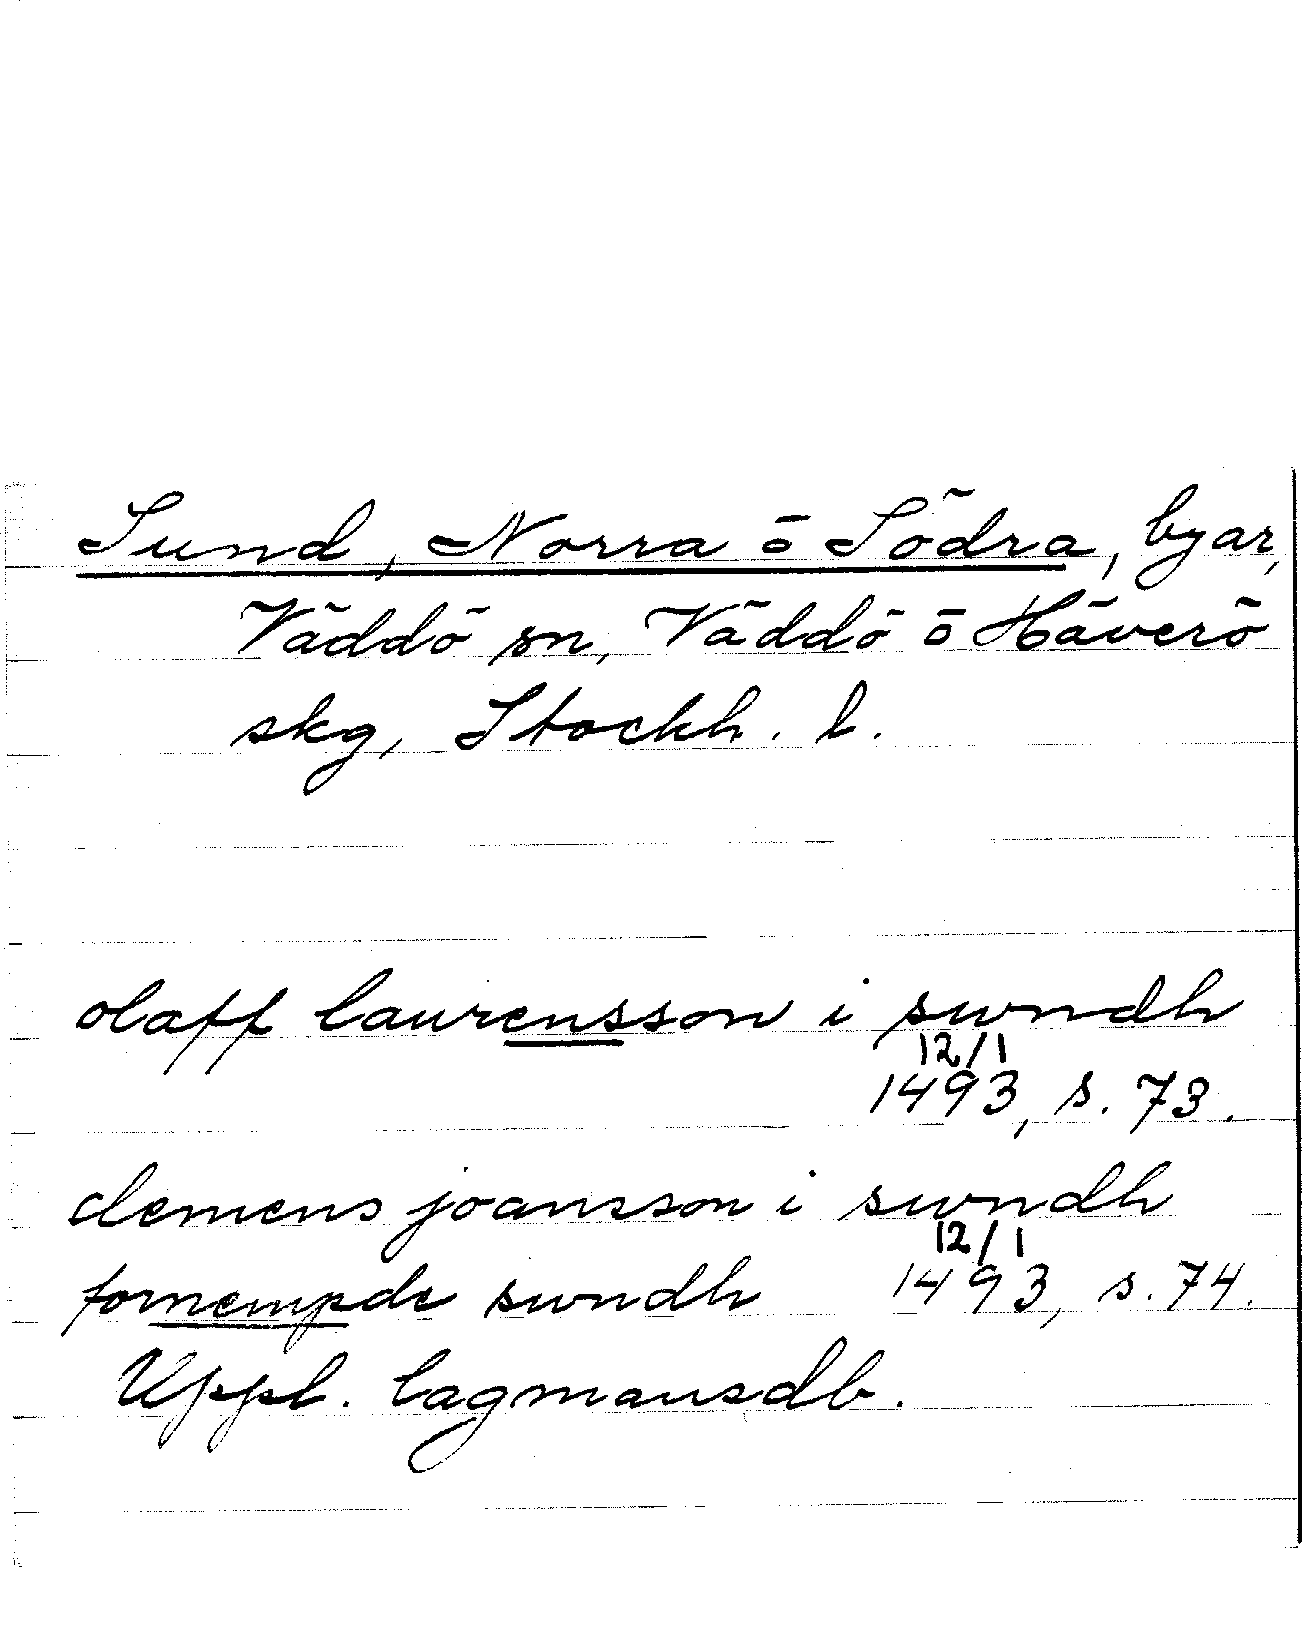 Sund, Norra ō Södra, byar,
Väddö sn, Väddö ō Häverö
skg, Stockh. l.
olaff laurensson i swndh
12/1
1493, s. 73.
clemens joansson i swndh
12/1
fornempde swndh 1493, s. 74.
Uppl. lagmansdb.